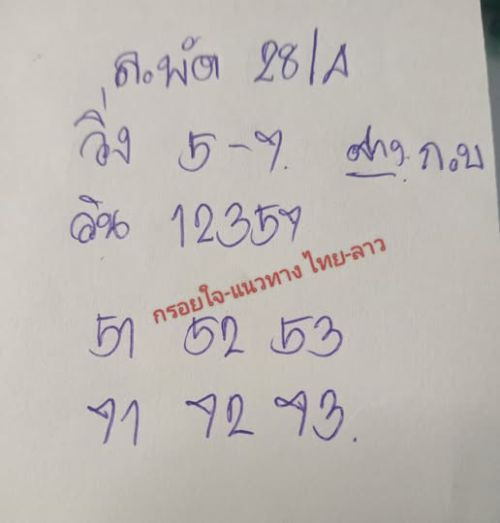 ล.พัด 28/A
วิ่ง 5-7. ล่าง ก.บ
วิน 12357
กรอยใจ-แนวทาง ไทย-ลาว
51 52 53
71 72 73.